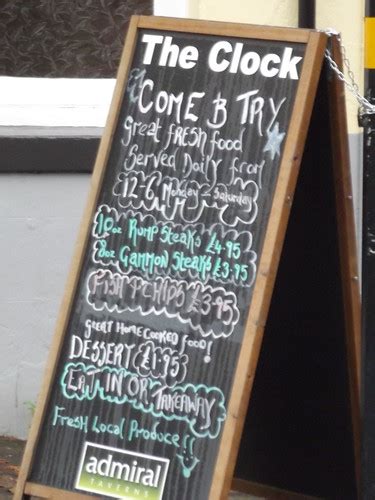 The Clock
COME B TRY
Great FRESH food
Served Daily from
12-6 Monday - Saturday
10oz Rump Steaks £4.95
8oz Gammon Steaks £3.95
FISH & CHIPS £3.95
GREAT HOME COOKED FOOD!
DESSERT £1.95
EAT IN OR TAKEAWAY
Fresh Local Produce!!
admiral
TAVERNS